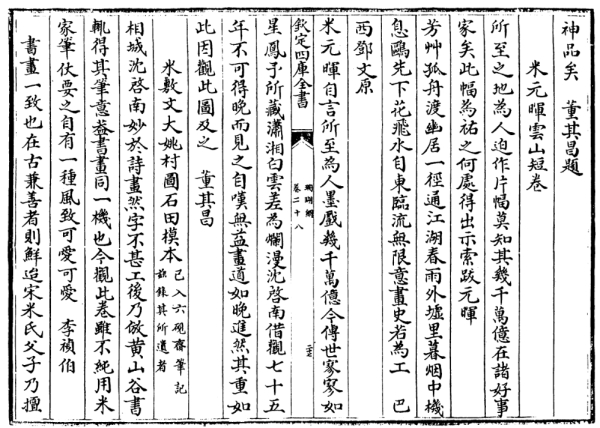 神品矣　董其昌題
米元暉雲山短卷
所至之地為人迫作片幅莫知其幾千萬億在諸好事
家矣此幅為祐之何處得出示索跋元暉
芳艸孤舟渡幽居一徑通江湖春雨外墟里暮烟中機
息鷗先下花飛水自東臨流無限意畫史若為工　巴
西鄧文原
米元暉自言所至為人墨戲幾千萬億今傳世寥寥如
欽定四庫全書
珊瑚網
卷二十八
星鳳予所藏瀟湘白雲差為爛漫沈啓南借觀七十五
年不可得晚而見之自嘆無益畫道如晚進然其重如
此因觀此圖及之　董其昌
米敷文大姚村圖石田模本
已入六硯齋筆記
茲錄其所遺者
相城沈啓南妙於詩畫然字不甚工後乃倣黄山谷書
輒得其筆意葢書畫同一機也今觀此卷雖不純用米
家筆仗要之自有一種風致可愛可愛　李禎伯
書畫一致也在古兼善者則鮮迨宋米氏父子乃擅